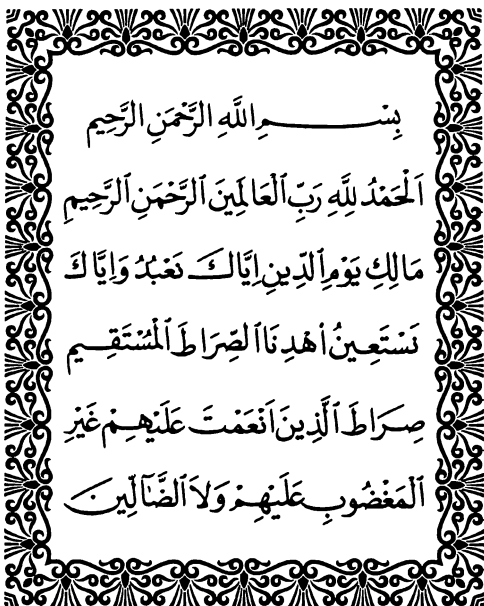 بِسْــــــمِ اللَّهِ الرَّحْمَنِ الرَّحِيمِ
اَلْحَمْدُ لِلَّهِ رَبِّ ٱلْعَالَمِينَ ٱلرَّحْمَنِ ٱلرَّحِيمِ
مَالِكِ يَوْمِ ٱلدِّينِ إِيَّاكَ نَعْبُدُ وَإِيَّاكَ
نَسْتَعِينُ اهْدِنَا ٱلصِّرَاطَ ٱلْمُسْتَقِيمَ
صِرَاطَ ٱلَّذِينَ اَنْعَمْتَ عَلَيْهِمْ غَيْرِ
ٱلْمَغْضُوبِ عَلَيْهِمْ وَلاَ ٱلضَّآلِّينَ